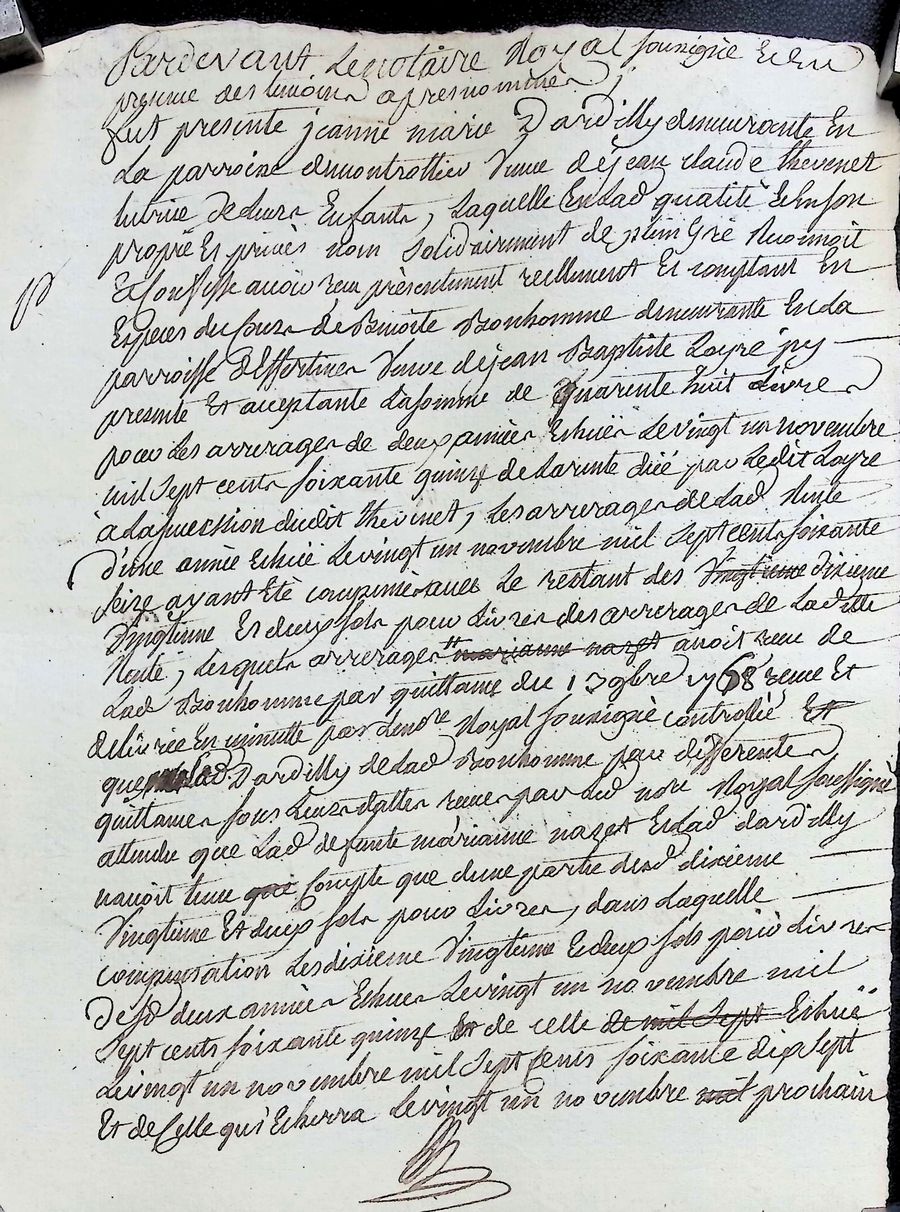 Pardevant Le notaire Royal sousigné Et En
presence des temoins apres nommés
fut presente jeanne marie Dardilly demeurante En
La parroisse de montrottier Veuve de jean claude thevenet
tutrice de Leurs Enfants, Laquelle En Lad qualité Et En son
propre Et privés nom solidairement de plein Gré Reconnoit
Et Confesse avoir reçu présentement reellement Et comptant En
Especes du Cours de Benoite Bonhomme demeurante En La
parroisse d'Essertines Veuve de jean Baptiste Loyre jcy
presente Et aceptante La somme de quarente huit Livres
pour Les arrerages de deux années Echuës Le vingt un novembre
mil sept cents soixante quinze de La rente düé par Ledit Loyre
a La succession dudit thevenet, Les arrerages de Lad Rente
d'une année Echuë Le vingt un novembre mil sept cents soixante
seize ayant Eté compensés avec Le restant des vingtieme dixieme
Vingtieme Et deux sols pour Livres des arrerages de Ladite
Rente, Lesquels arrerages marianne nazet avoit reçu de
Lad Bonhomme par quittance du 13 9bre 1768 reçue Et
delivrée En minutte par Le nore Royal sousigné controllée Et
que Lad Dardilly de Lad Bonhomme par differentes
quittances sous Leurs dattes reçues par Led nore Royal soussigné
attendu que Lad defunte marianne nazet Et Lad dardilly
navoit tenu Compte que d'une partie desd dixieme
Vingtieme Et deux sols pour Livres, dans Laquelle
compensation Les dixieme Vingtieme Et deux sols pour Livres
Desd deux années Echues Le vingt un novembre mil
sept cents soixante quinze Et de celle de mil sept Echuë
Le vingt un novembre mil sept cents soixante dix sept
Et de Celle qui Echerra Le vingt un novembre mil prochain